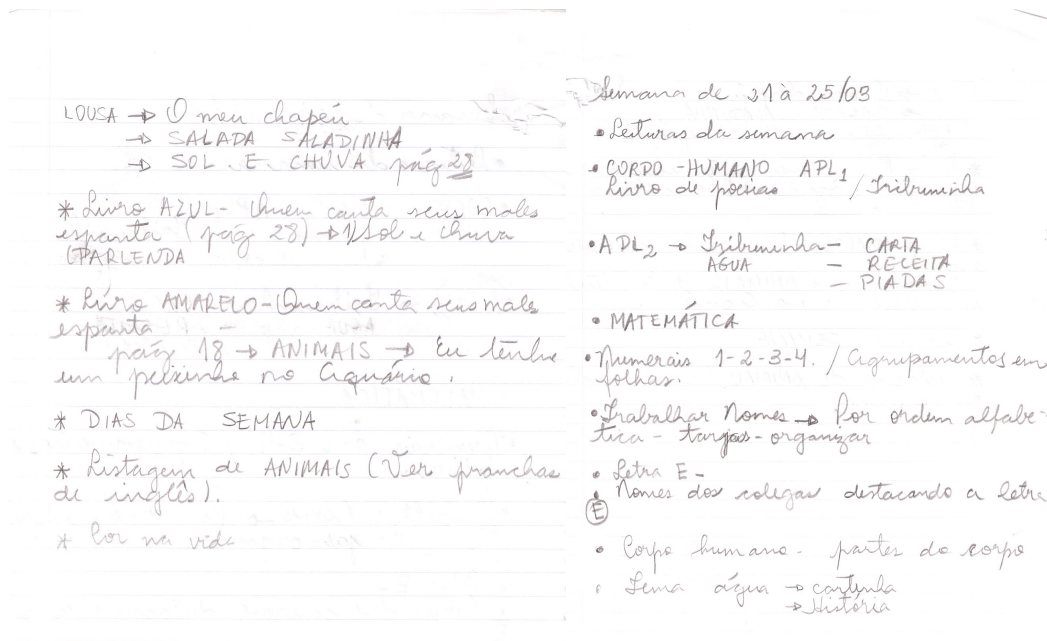 LOUSA → O meu chapéu
→ SALADA SALADINHA
→ SOL E CHUVA pág 28
* Livro AZUL - Quem canta seus males
espanta (pág 28) → Sol e chuva
(PARLENDA
* Livro AMARELO - Quem canta seus males
espanta -
pág 18 → ANIMAIS → Eu tenho
um peixinho no Aquário.
* DIAS DA SEMANA
* Listagem de ANIMAIS (Ver pranchas
de inglês).
* Cor na vida
Semana de 21 à 25/03
• Leituras da semana
• CORDO - HUMANO APL1
Livro de poesias / Tribuninha
• APL2 → Tribuninha - CARTA
ÁGUA - RECEITA
- PIADAS
• MATEMÁTICA
• Numerais 1-2-3-4. / Agrupamentos em
folhas.
• Trabalhar Nomes → Por ordem alfabé-
tica - tarjas - organizar
• Letra E -
• Nomes dos colegas destacando a letra
E
• Corpo humano - partes do corpo
• Tema água → cartinha
→ História